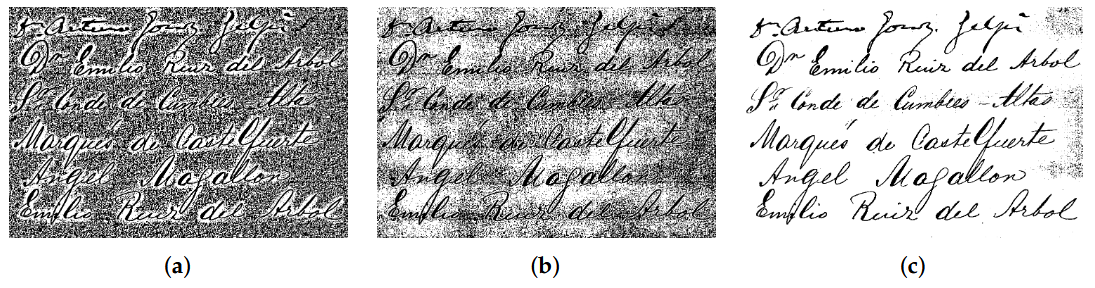 Arturo
Dn Emilio Ruiz del Arbol
Sr. Conde de Cumbres-Altas
Marqués de Castelfuerte
Angel Magallon
Emilio Ruiz del Arbol
(a)
Arturo
Dn Emilio Ruiz del Arbol
Sr. Conde de Cumbres-Altas
Marqués de Castelfuerte
Angel Magallon
Emilio Ruiz del Arbol
(b)
Arturo
Dn Emilio Ruiz del Arbol
Sr. Conde de Cumbres-Altas
Marqués de Castelfuerte
Angel Magallon
Emilio Ruiz del Arbol
(c)